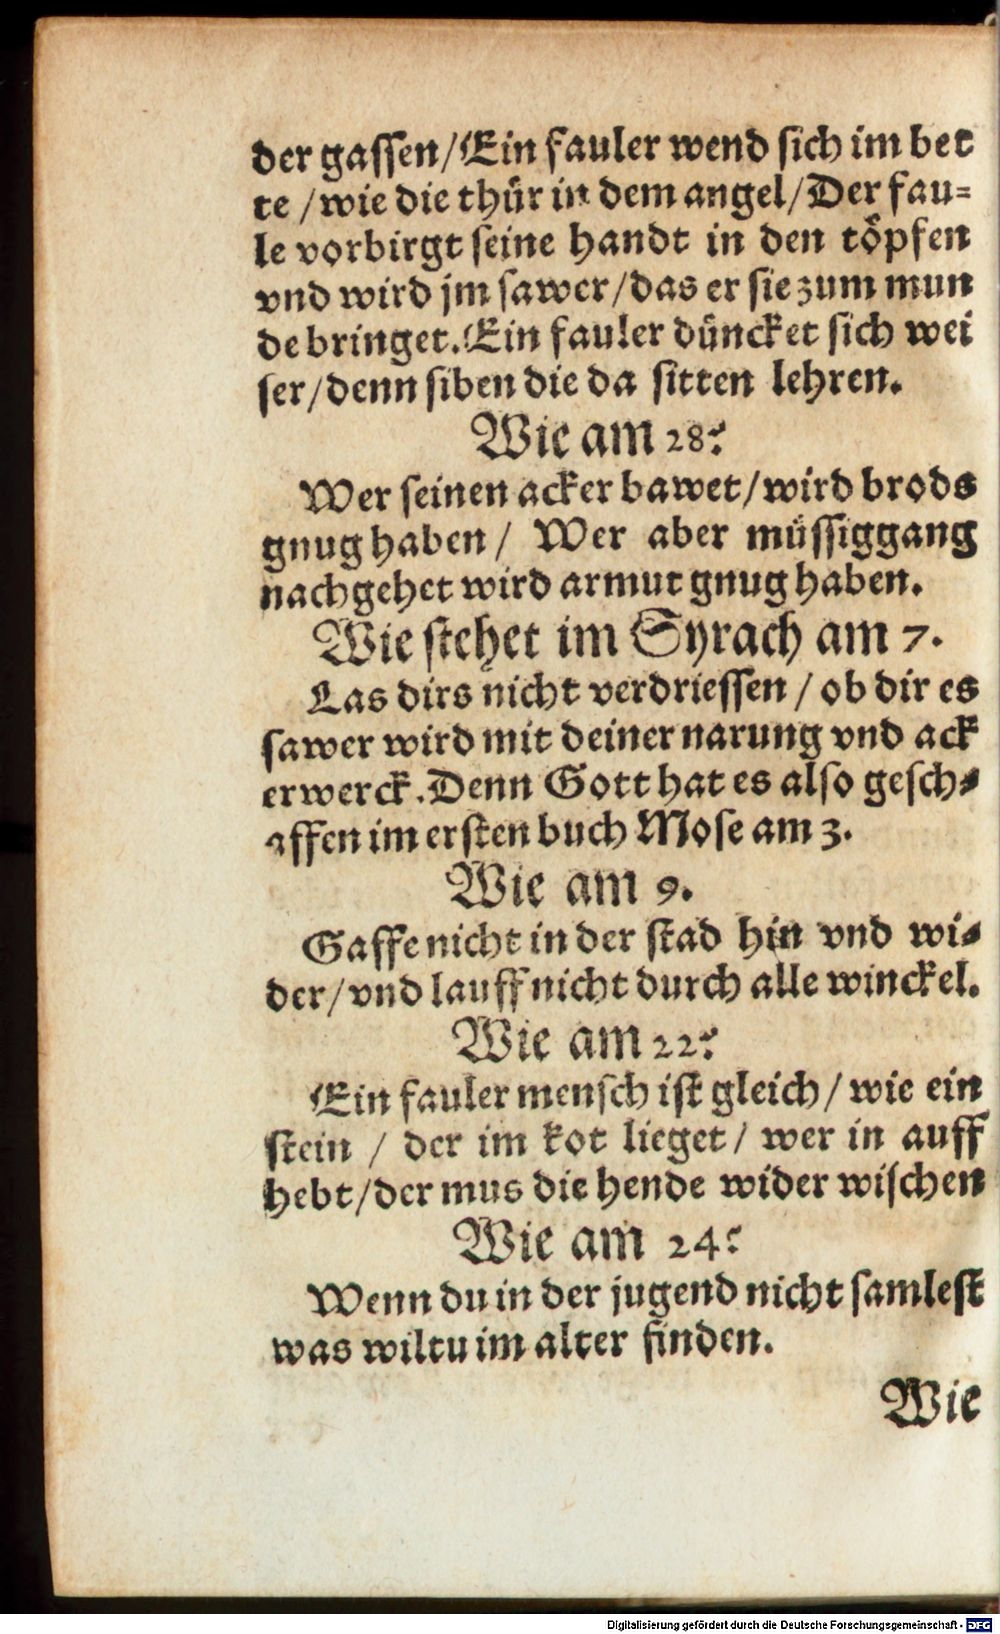 der gassen/Ein fauler wend sich im bet
te /wie die thür in dem angel/Der fau=
le vorbirgt seine handt in den töpfen
vnd wird jm sawer/das er sie zum mun
de bringet.Ein fauler düncket sich wei
ser/denn siben die da sitten lehren.
Wie am 28:
Wer seinen acker bawet/wird brods
gnug haben/ Wer aber müssiggang
nachgehet wird armut gnug haben.
Wie stehet im Syrach am 7.
Las dirs nicht verdriessen / ob dir es
sawer wird mit deiner narung vnd ack
erwerck.Denn Gott hat es also gesch=
affen im ersten buch Mose am 3.
Wie am 9.
Gaffe nicht in der stad hin vnd wi=
der/vnd lauff nicht durch alle winckel.
Wie am 22:
Ein fauler mensch ist gleich/ wie ein
stein / der im kot lieget/ wer in auff
hebt/der mus die hende wider wischen
Wie am 24:
Wenn du in der jugend nicht samlest
was wiltu im alter finden.
Wie
Digitalisierung gefördert durch die Deutsche Forschungsgemeinschaft - DFG